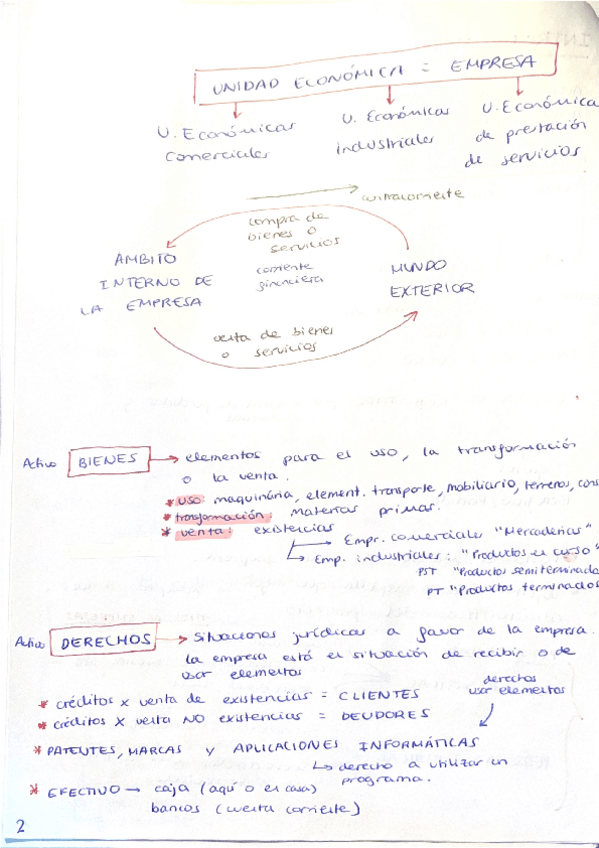 UNIDAD ECONÓMICA = EMPRESA
U. Económicas comerciales
U. Económicas industriales
U. Económica de prestación de servicios
contracorriente
compra de bienes o servicios
corriente financiera
ÁMBITO INTERNO DE LA EMPRESA
MUNDO EXTERIOR
venta de bienes o servicios
Activo BIENES → elementos para el uso, la transformación
o la venta.
* uso: maquinaria, element. transporte, mobiliario, terrenos, cons
* transformación: materias primas.
* venta: existencias
Empr. comerciales "Mercaderías"
Emp. industriales: "Productos en curso"
PST "Productos semiterminado
PT "Productos terminados
Activo DERECHOS → Situaciones jurídicas a favor de la empresa.
la empresa está en situación de recibir o de
usar elementos
derechos
usar elementos
* créditos x venta de existencias = CLIENTES
* créditos x venta NO existencias = DEUDORES
* PATENTES, MARCAS y APLICACIONES INFORMÁTICAS
derecho a utilizar un
programa.
* EFECTIVO → caja (aquí o en casa)
bancos (cuenta corriente)
2